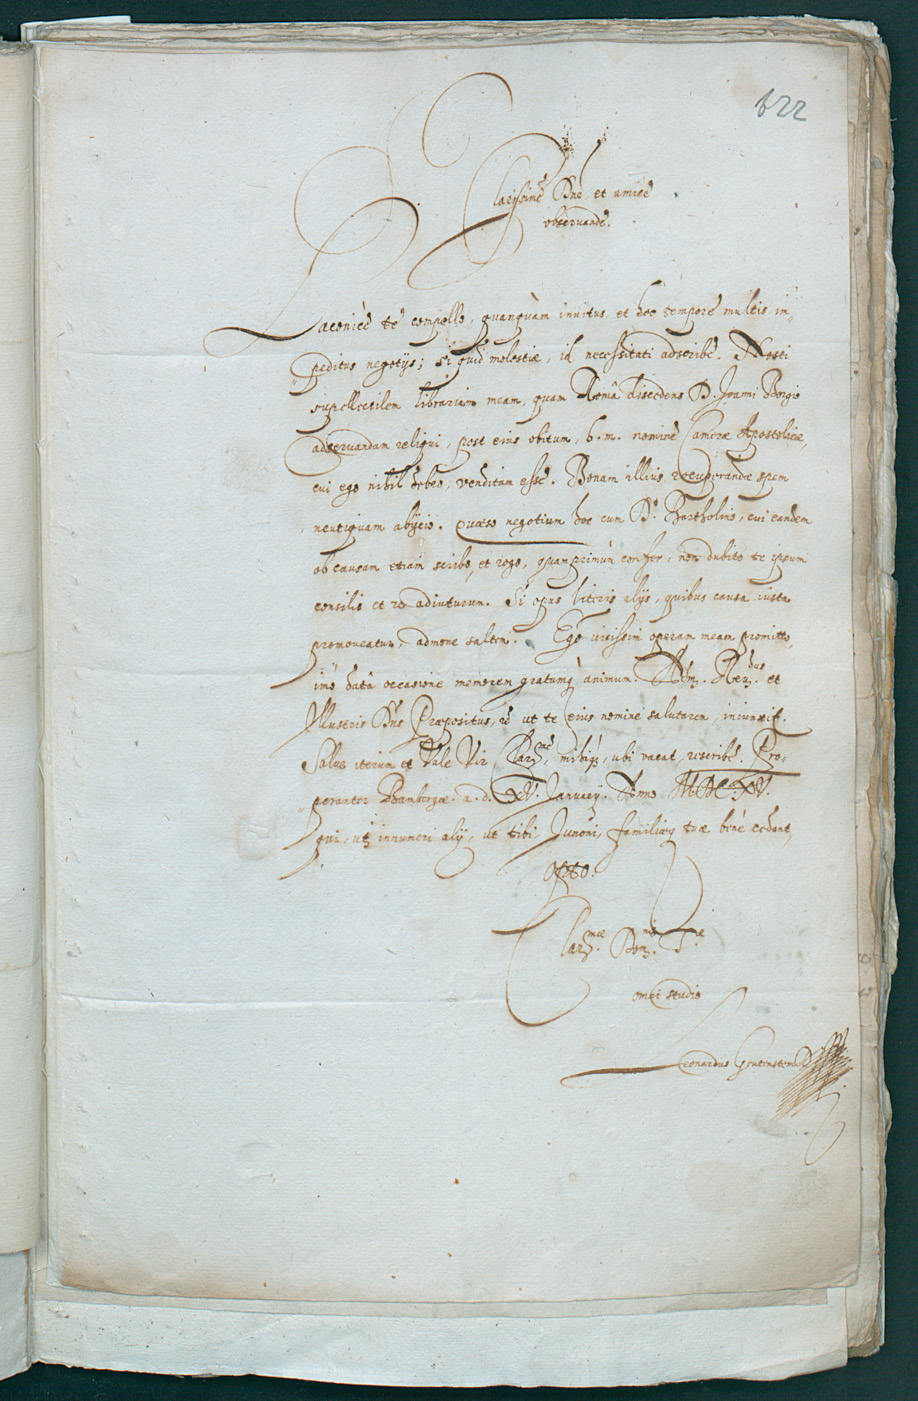 622
Clarissime Dne et amice
observande.
Laconicè te compello, quanquàm invitus, et hoc tempore multis im-
peditus negotijs; si quid molestiæ, id necessitati adscribe. Nosti
supellectilem librariam meam, quam Româ discedens D. Joanni Borgio
adservandam reliqui, post eius obitum, b. m. nomine Cameræ Apostolicæ,
cui ego nihil debeo, venditam esse. Bonam illius recuperandæ spem
neutiquam abijcio. quæso negotium hoc cum D. Bartholino, cui eandem
ob causam etiam scribo, et rogo, quamprimùm confer, non dubito te ipsum
consilio et re adiuturum. Si opus literis alijs, quibus causa iusta
promoveatur, admone saltem. Ego vicissim operam meam promitto,
imò datâ occasione memorem gratumq animum. Adm. Rev.dus et
Illustris Dns Præpositus, id ut te eius nomine salutarem, iniunxit.
Salve iterum et Vale Vir Clar.me, mihiq, ubi vacat, rescribe. Pro-
peranter Bambergæ. a. d. XV. Januarij. Anno MDC.XV.
qui, ut innumeri alij, ut tibi, Junoni, familiæq tuæ bene cedant,
opto.
Clar.mæ Don.nis T.æ
omni studio
Leonardus